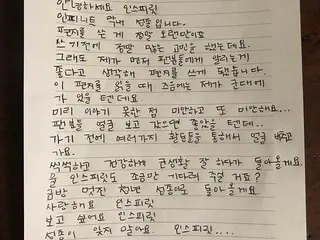 안녕하세요 인스피릿
인피니트 막내 성종입니다.
편지를 쓰는 게 정말 오랜만이죠
쓰기전에 정말 많은 고민을 했는데요.
그래도 제가 먼저 팬분들에게 알리는게
좋다고 생각해 편지를 쓰게 됐습니다.
이 편지를 읽을 때 즈음에는 제가 군대에
가 있을 텐데요.
미리 이야기 못한 점 미안하고 또 미안해요...
팬분들 얼굴 보고 갔으면 좋았을 텐데..
가기 전에 여러가지 활동들을 통해서 얼굴 비추고
가요.
씩씩하고 건강하게 군생활 잘 하다가 돌아올게요.
울 인스피릿도 조금만 기다려 주실 거죠?
금방 멋진 청년 성종이로 돌아 올게요
사랑해요 인스피릿
보고 싶어요 인스피릿
성종이 잊지 말아요 인스피릿....